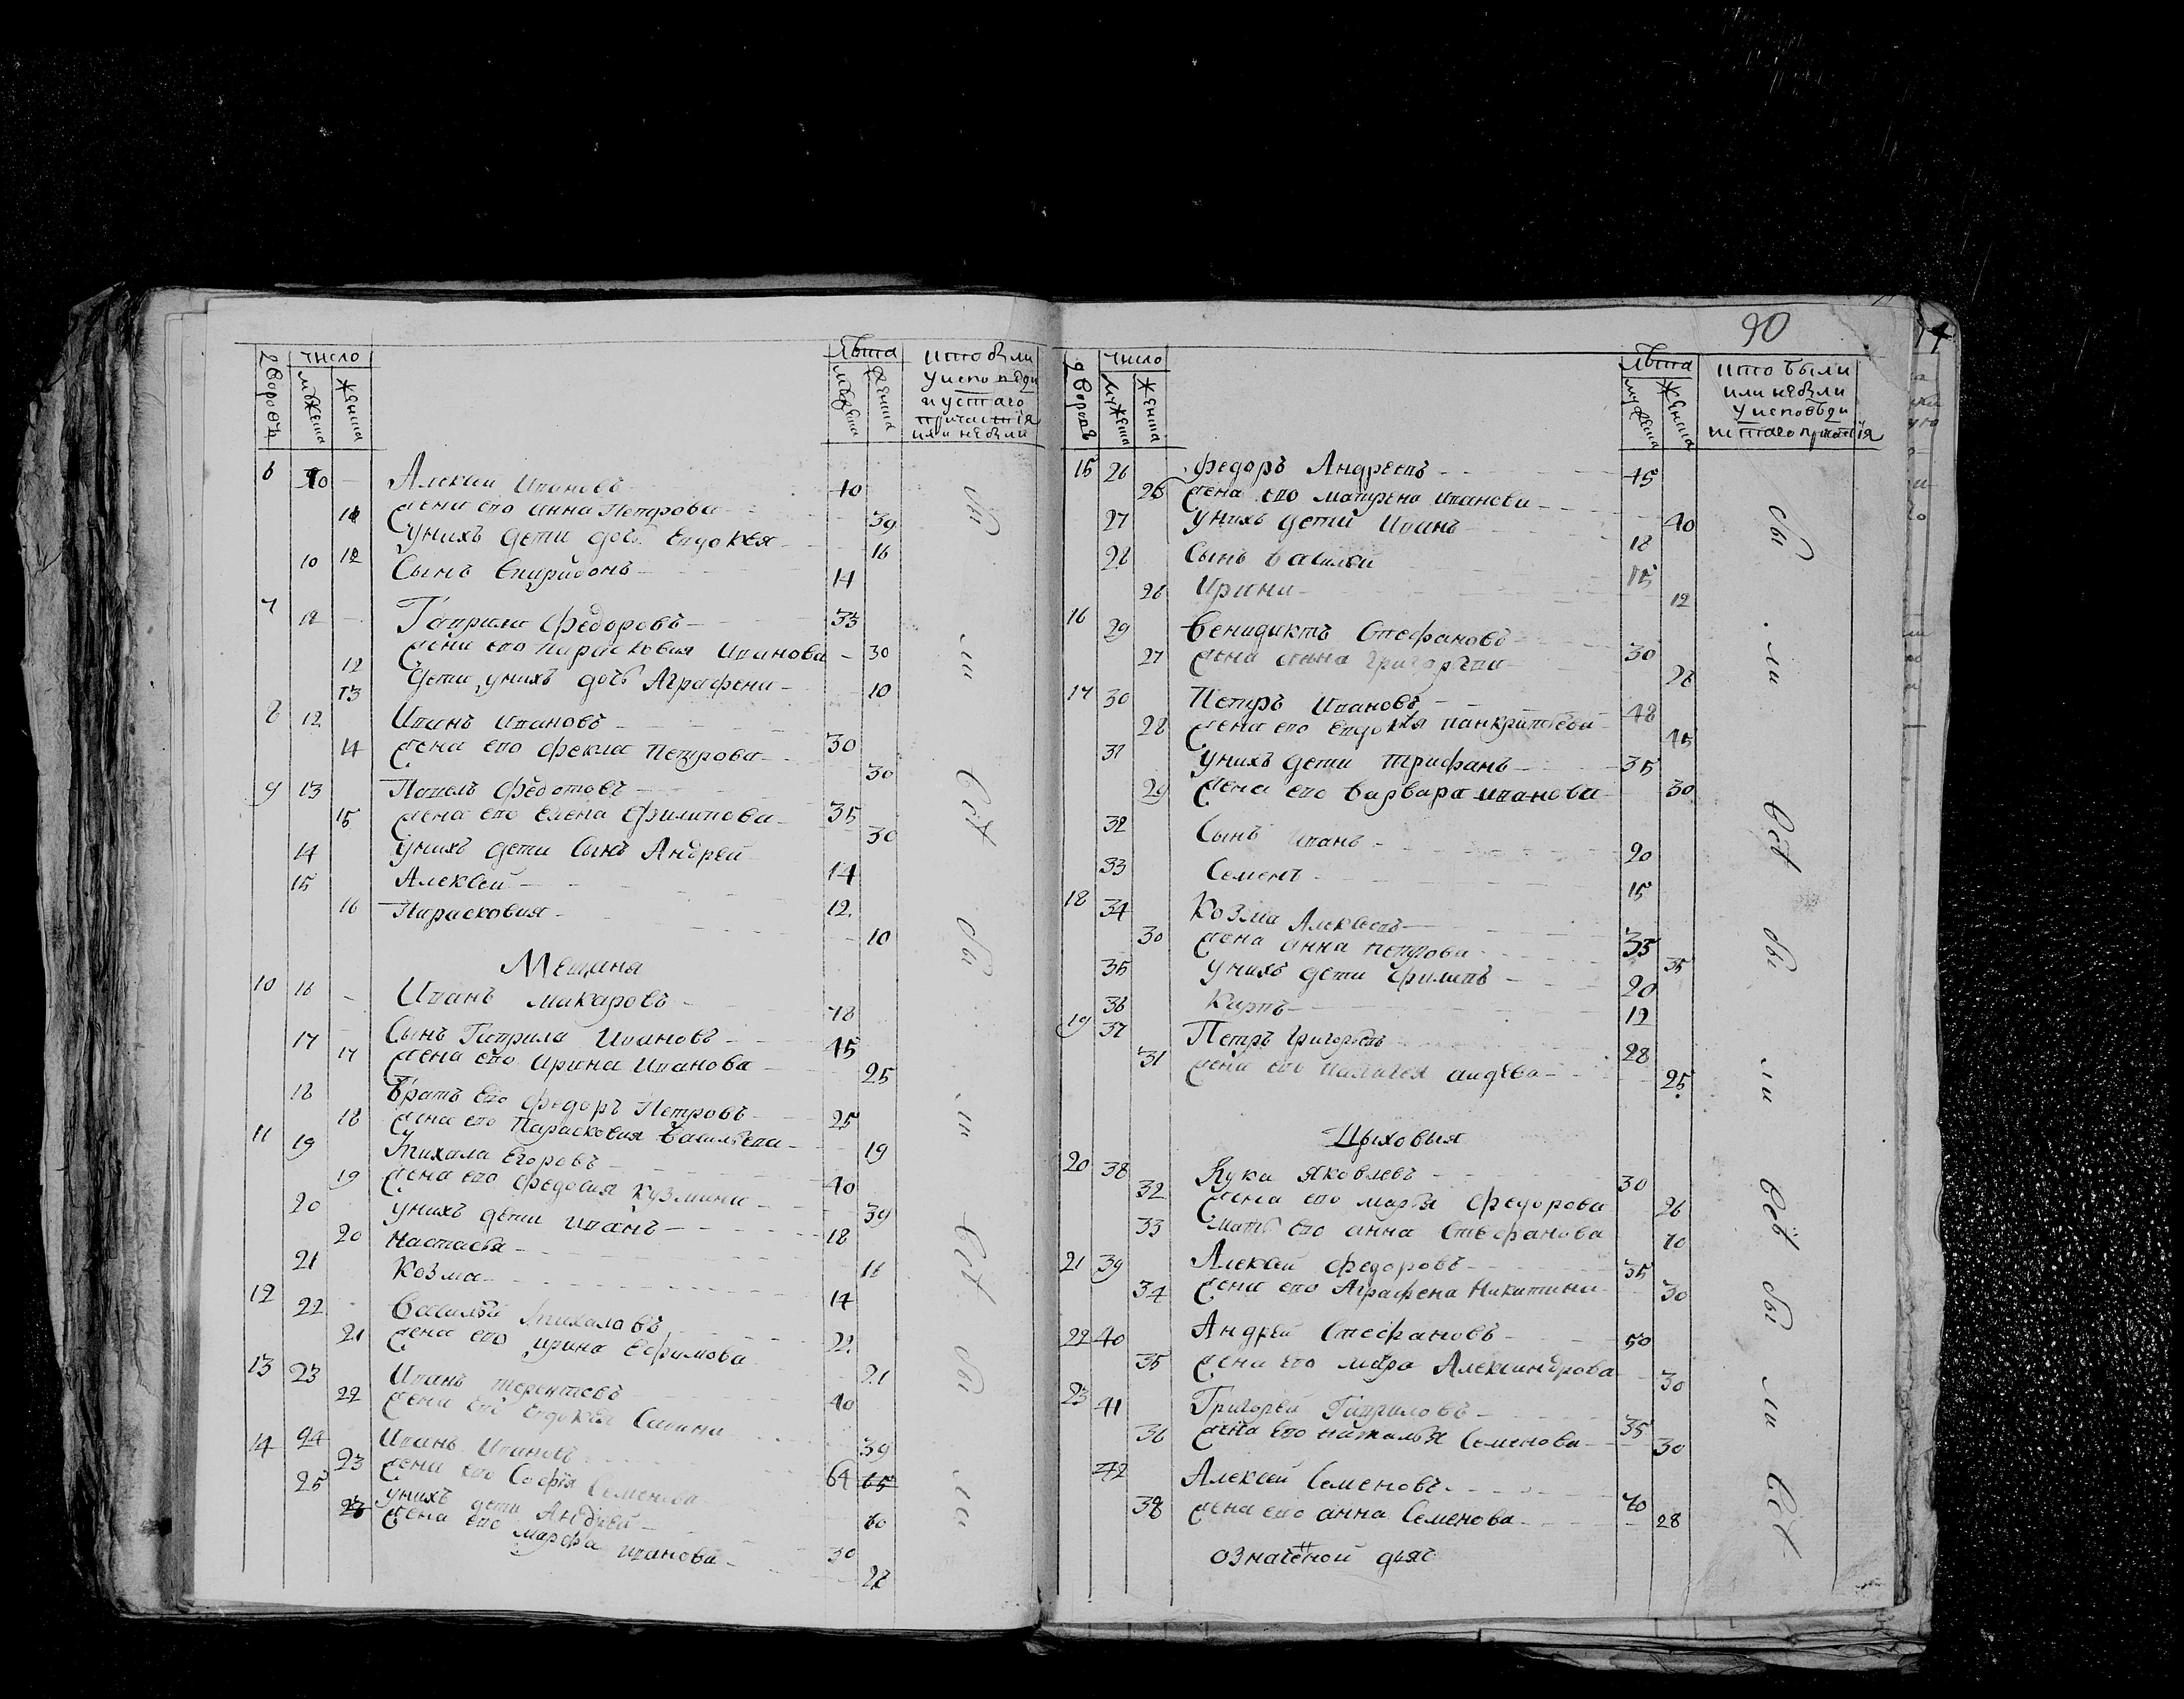 Дворовъ число мужеска женска Лѣта мужеска женска кто были
у исповѣди
и у стаго
причастїя
или не были
6 10 Алексѣй Ивановъ 40
11 Жена его Анна Петрова 39
12 У нихъ дети дочь Евдокѣя 16
10 Сынъ Спиридонъ 14
7 12 Гаврила Федоровъ 33
12 Жена его Парасковия Иванова 30
13 Дети у нихъ дочь Аграфена 10
8 12 Иванъ Ивановъ 30
14 Жена его Фекла Петрова 30
9 13 Павелъ Федотовъ 35
15 Жена его Елена Филипова 30
14 У нихъ дети Сынъ Андрей 14
15 Алексѣй 12
16 Парасковия 10
Мещаня
10 16 Иванъ Макаровъ 78
17 Сынъ Гаврила Ивановъ 45
17 Жена его Ирина Иванова 25
18 Братъ его Федоръ Петровъ 25
18 Жена его Парасковия Васильева 19
11 19 Михала Егоровъ 40
19 Жена его Федосия Кузмина 39
20 У нихъ дети Иванъ 18
20 Настасья 16
21 Козма 14
12 22 Василѣй Михаловъ 22
21 Жена его Ирина Ефимова 21
13 23 Иванъ Терентевъ 40
22 Жена его Евдокѣя Савина 39
14 24 Иванъ Ивановъ 64 65
23 Жена его Софїя Семенова 60
25 У нихъ дети Андрей 30
Жена его Марфа Иванова 22
бы ли всѣ бы ли всѣ бы ли
90
Дворовъ число мужеска женска Лѣта мужеска женска кто были
или не были
у исповѣди
и стаго причастїя
15 26 Федоръ Андреевъ 45
25 Жена его Матрена Иванова 40
27 У нихъ дети Иванъ 18
28 Сынъ Василѣй 15
26 Ирина 12
16 29 Венидиктъ Стефановъ 30
27 Жена Григорьева 28
17 30 Петръ Ивановъ 48
28 Жена его Евдокѣя Панкратѣева 45
31 У нихъ дети Трифанъ 35
29 Жена его Варвара Иванова 30
32 Сынъ Иванъ 20
33 Семенъ 15
18 34 Козма Алексѣевъ 35
30 Жена Анна Петрова 35
35 У нихъ дети Филипъ 20
36 Карпъ 12
19 37 Петръ Григорьевъ 28
31 Жена его Палагея 25
Цѣховыя
20 38 Лука Яковлевъ 30
32 Жена его Марѳа Федорова 26
33 Мать его Анна Стефанова 70
21 39 Алексѣй Федоровъ 35
34 Жена его Аграфена Никитина 30
22 40 Андрѣй Стефановъ 50
35 Жена его Александрова 30
23 41 Григорѣй Гавриловъ 35
36 Жена его Наталья Семенова 30
42 Алексѣй Семеновъ 70
38 Жена его Анна Семенова 28
означеной
бы ли всѣ бы ли всѣ бы ли всѣ